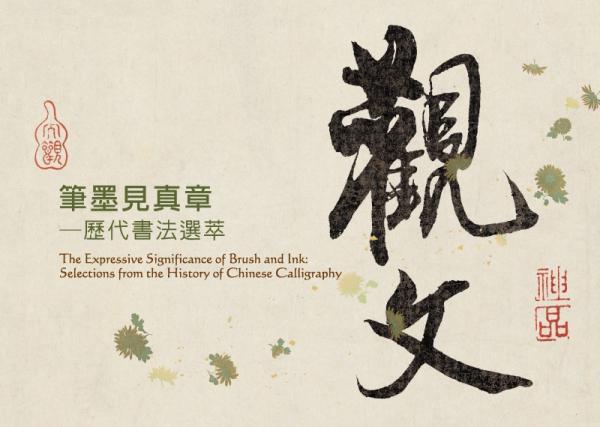 觀文
筆墨見真章
—歷代書法選萃
The Expressive Significance of Brush and Ink:
Selections from the History of Chinese Calligraphy
神品